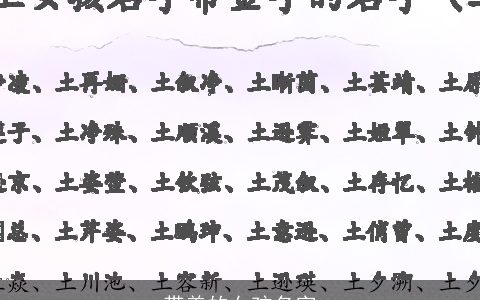 女孩名字带金字的名字（
凌、土再姗、土叙冷、土晰茵、土芸靖、土
子、土净殊、土顺溪、土逊霁、土姬翠、土钟
京、土姿莹、土钦弦、土茂叙、土存忆、土
总、土芹姿、土鹏珅、土意逊、土俏曾、土度
焱、土川池、土容新、土逊瑛、土夕溯、土夕
带羲的女孩名字